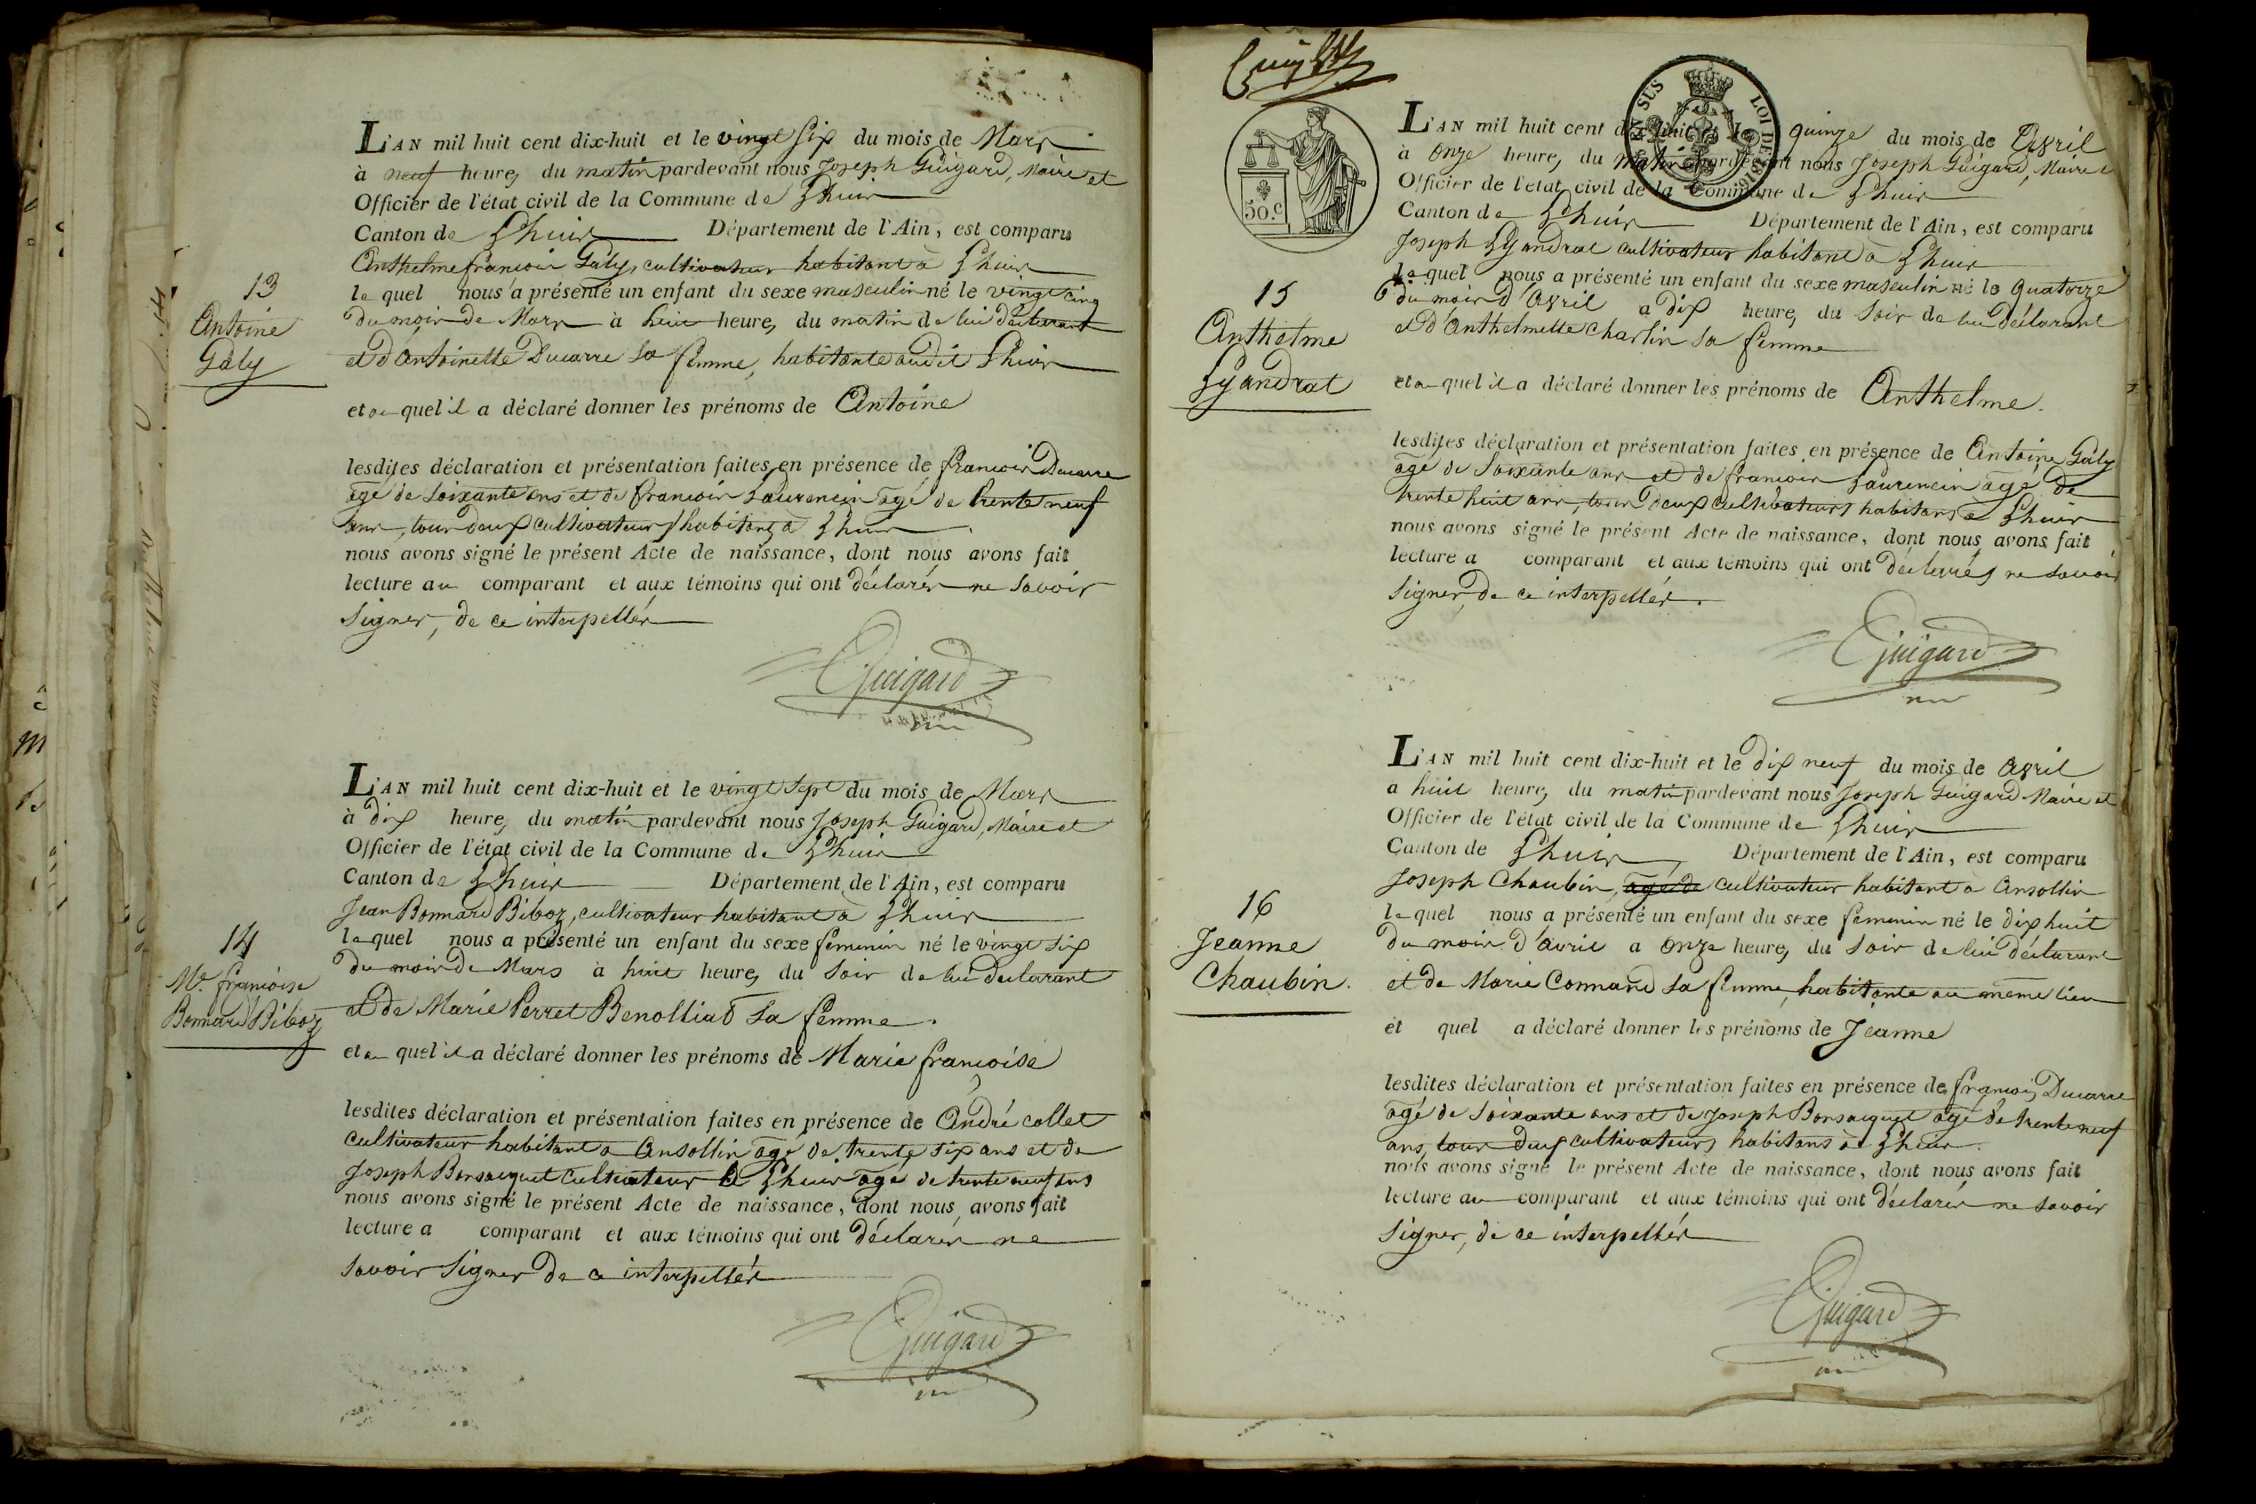 L'AN mil huit cent dix-huit et le vingt six du mois de Mars
à neuf heures du matin pardevant nous Joseph Guigard, Maire et
Officier de l'état civil de la Commune de Lhuis
Canton de Lhuis Département de l'Ain, est comparu
Anthelme françois Galy, cultivateur habitant à Lhuis
le quel nous a présenté un enfant du sexe masculin né le vingt cinq
du mois de Mars à huit heures du matin de lui déclarant
et d'Antoinette Ducarre sa femme, habitante audit Lhuis
et au quel il a déclaré donner les prénoms de Antoine
lesdites déclaration et présentation faites en présence de françois Ducarre
agé de soixante ans et de françois Laurencin agé de trente neuf
ans, tous deux cultivateurs habitans à Lhuis
nous avons signé le présent Acte de naissance, dont nous avons fait
lecture au comparant et aux témoins qui ont déclarés ne savoir
signer, de ce interpellés
Guigard
13
Antoine
Galy
L'AN mil huit cent dix-huit et le vingt sept du mois de Mars
à dix heures du matin pardevant nous Joseph Guigard, Maire et
Officier de l'état civil de la Commune de Lhuis
Canton de Lhuis Département de l'Ain, est comparu
Jean Bonnard Biboz, cultivateur habitant à Lhuis
le quel nous a présenté un enfant du sexe feminin né le vingt six
du mois de Mars à huit heures du soir de lui declarant
et de Marie Perret Benolliat sa femme
et au quel il a déclaré donner les prénoms de Marie françoise
lesdites déclaration et présentation faites en présence de André collet
cultivateur habitant a Ansollin agé de trente six ans et de
Joseph Bonsacquet cultivateur à Lhuis agé de trente neuf ans
nous avons signé le présent Acte de naissance, dont nous avons fait
lecture a comparant et aux témoins qui ont déclarés ne
savoir signer de ce interpellés
Guigard
14
Me. françoise
Bonnard Biboz
50 c
LOI DE 1816
L'AN mil huit cent dix-huit et le quinze du mois de Avril
à onze heures du matin pardevant nous Joseph Guigard, Maire et
Officier de l'etat civil de la Commune de Lhuis
Canton de Lhuis Département de l'Ain, est comparu
Joseph Lyandrat cultivateur habitant à Lhuis
le quel nous a présenté un enfant du sexe masculin né le quatorze
du mois d'Avril a dix heures du soir de lui déclarant
et d'Anthelmette charlin sa femme
et au quel il a déclaré donner les prénoms de Anthelme.
lesdites déclaration et présentation faites en présence de Antoine Galy
agé de soixante ans et de françois Laurencin agé de
trente huit ans, tous deux cultivateurs habitans a Lhuis
nous avons signé le présent Acte de naissance, dont nous avons fait
lecture a comparant et aux témoins qui ont déclarés ne savoir
signer, de ce interpellés.
Guigard
15
Anthelme
Lyandrat
L'AN mil huit cent dix-huit et le dix neuf du mois de avril
a huit heures du matin pardevant nous Joseph Guigard Maire et
Officier de l'état civil de la Commune de Lhuis
Canton de Lhuis Département de l'Ain, est comparu
Joseph Chaubin, agé de cultivateur habitant à Ansollin
le quel nous a présenté un enfant du sexe feminin né le dix huit
du mois d'avril a onze heures du soir de lui déclarant
et de Marie Connand sa femme, habitante au même lieu
et quel a déclaré donner les prénoms de Jeanne
lesdites déclaration et présentation faites en présence de françois Ducarre
agé de soixante ans et de Joseph Bonsacquet agé de trente neuf
ans, tous deux cultivateurs habitans à Lhuis.
nous avons signé le présent Acte de naissance, dont nous avons fait
lecture au comparant et aux témoins qui ont déclarés ne savoir
signer, de ce interpellés
Guigard
16
Jeanne
Chaubin.